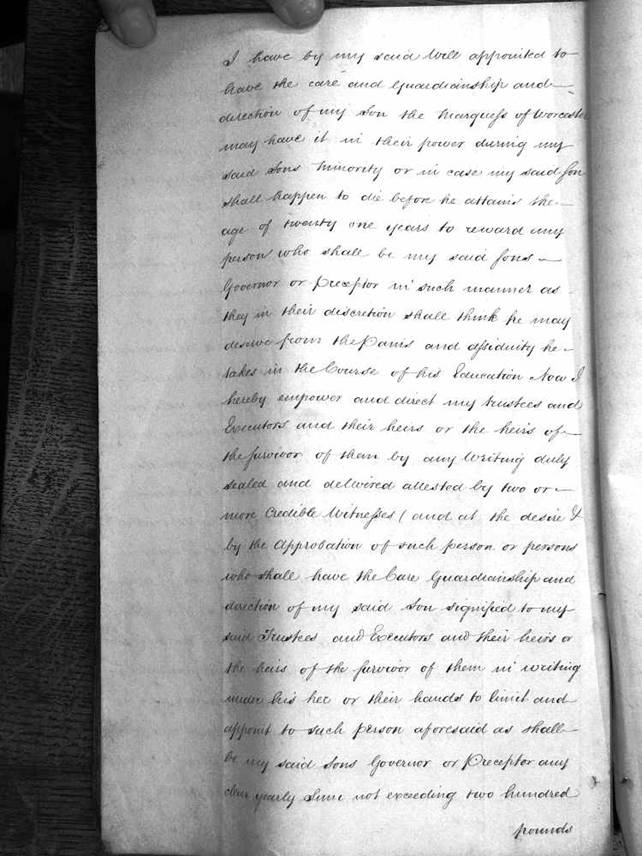 I have by my said Will appointed to
have the care and Guardianship and
direction of my Son the Marquess of Worcester
may have it in their power during my
said Sons Minority or in case my said Son
shall happen to die before he attains the
age of twenty one years to reward any
person who shall be my said Sons
Governor or Preceptor in such manner as
they in their discretion shall think he may
deserve from the Pains and assiduity he
takes in the Course of his Education Now I
hereby empower and direct my trustees and
Executors and their heirs or the heirs of
the survivor of them by any Writing duly
sealed and delivered attested by two or
more Credible Witnesses (and at the desire &
by the Approbation of such person or persons
who shall have the Care Guardianship and
direction of my said Son signified to my
said Trustees and Executors and their heirs or
the heirs of the survivor of them in writing
under his her or their hands to limit and
appoint to such person aforesaid as shall
be my said Sons Governor or Preceptor any
clear yearly Sum not exceeding two hundred
pounds